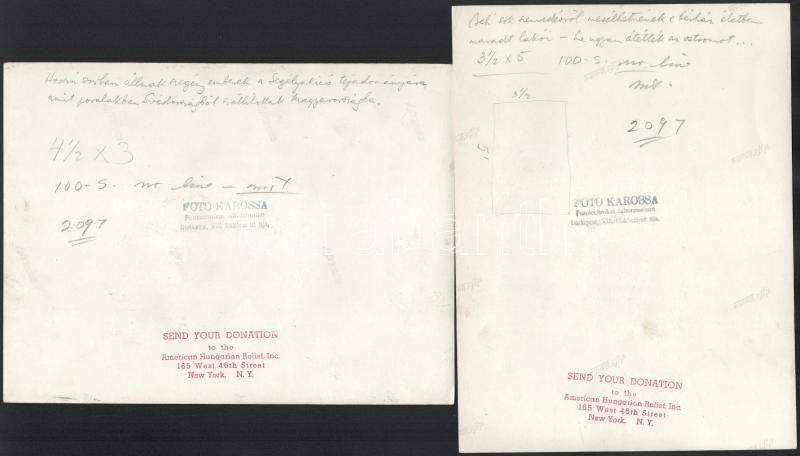 Hosszú sorban állnak szegény emberek a Segélyakció tejadományára,
amit poralakban Svédországból szállítottak Magyarországba.
4½ x 3
100-S. no line -
2097
FOTO KAROSSA
Fototechnikai laboratorium
Budapest, VIII. Rákóczi-ut
SEND YOUR DONATION
to the
American Hungarian Relief, Inc.
165 West 46th Street
New York, N. Y.
sok szenvedésről mesélhetnének e bérház életben
maradt lakói – ha ugyan átélték az ostromot...
3½ x 5 100-S. no line
3½
5"
2097
FOTO KAROSSA
Fototechnikai laboratorium
Budapest, VIII. Rákóczi-ut
SEND YOUR DONATION
to the
American Hungarian Relief, Inc.
165 West 46th Street
New York, N. Y.